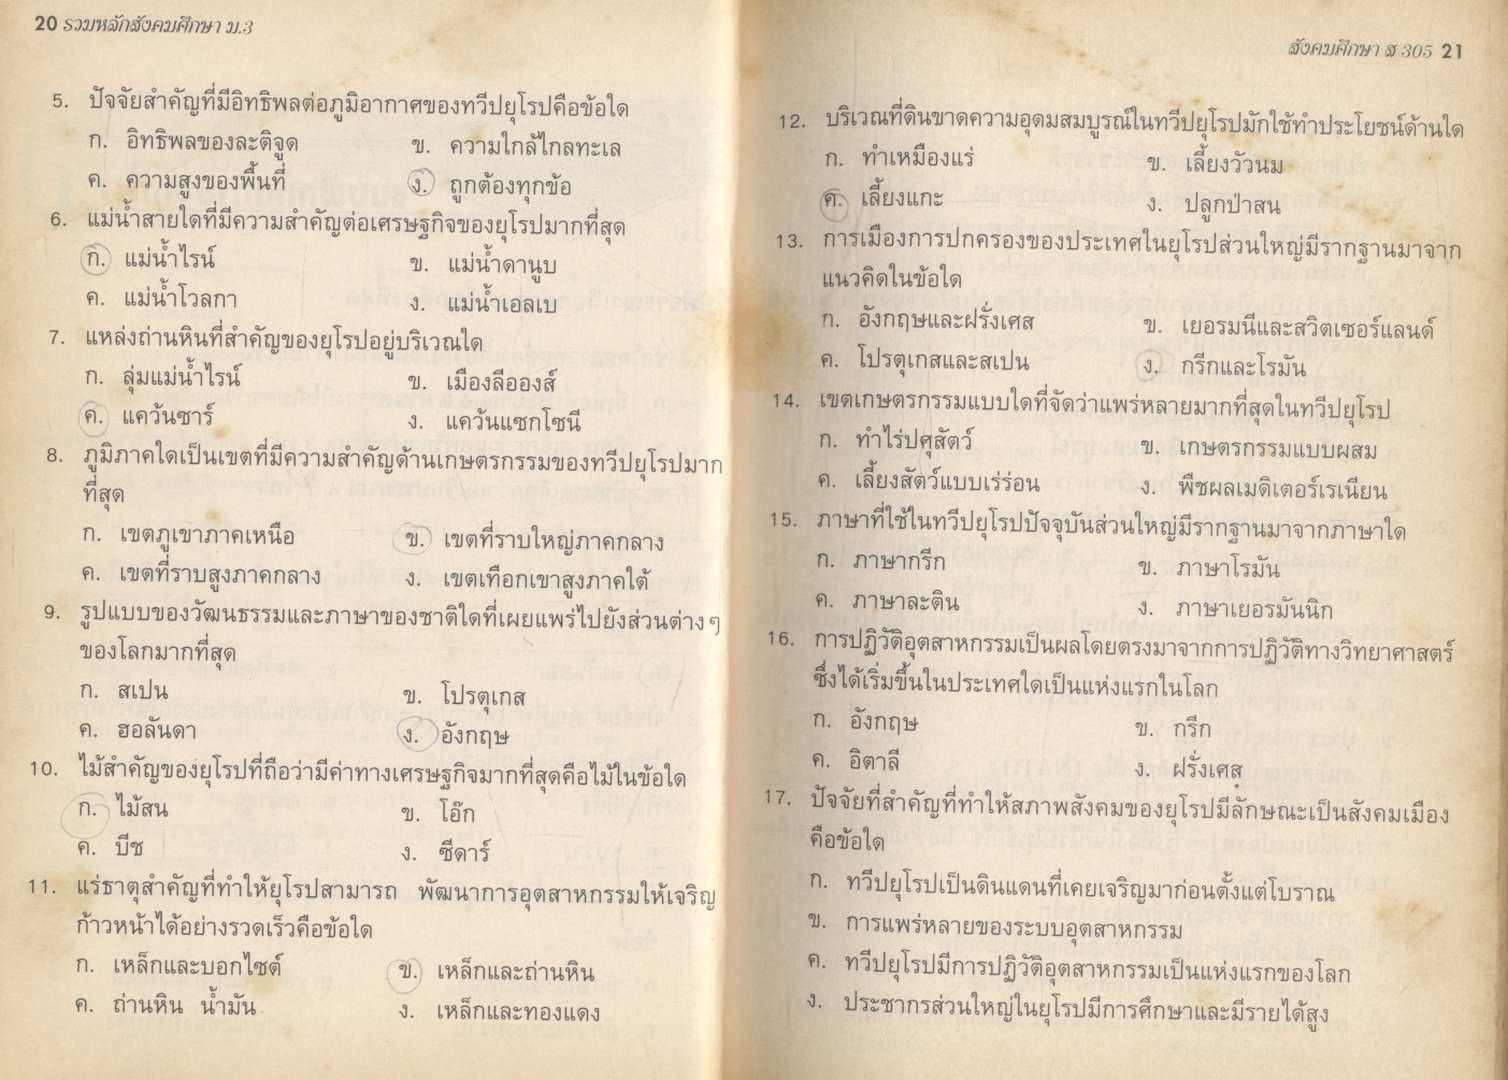 20 รวมหลักสังคมศึกษา ม.3
5. ปัจจัยสำคัญที่มีอิทธิพลต่อภูมิอากาศของทวีปยุโรปคือข้อใด
ก. อิทธิพลของละติจูด ข. ความใกล้ไกลทะเล
ค. ความสูงของพื้นที่ ง. ถูกต้องทุกข้อ
6. แม่น้ำสายใดที่มีความสำคัญต่อเศรษฐกิจของยุโรปมากที่สุด
ก. แม่น้ำไรน์ ข. แม่น้ำดานูบ
ค. แม่น้ำโวลกา ง. แม่น้ำเอลเบ
7. แหล่งถ่านหินที่สำคัญของยุโรปอยู่บริเวณใด
ก. ลุ่มแม่น้ำไรน์ ข. เมืองลีอองส์
ค. แคว้นซาร์ ง. แคว้นแซกโซนี
8. ภูมิภาคใดเป็นเขตที่มีความสำคัญด้านเกษตรกรรมของทวีปยุโรปมาก
ที่สุด
ก. เขตภูเขาภาคเหนือ ข. เขตที่ราบใหญ่ภาคกลาง
ค. เขตที่ราบสูงภาคกลาง ง. เขตเทือกเขาสูงภาคใต้
9. รูปแบบของวัฒนธรรมและภาษาของชาติใดที่เผยแพร่ไปยังส่วนต่างๆ
ของโลกมากที่สุด
ก. สเปน ข. โปรตุเกส
ค. ฮอลันดา ง. อังกฤษ
10. ไม้สำคัญของยุโรปที่ถือว่ามีค่าทางเศรษฐกิจมากที่สุดคือไม้ในข้อใด
ก. ไม้สน ข. โอ๊ก
ค. บีช ง. ซีดาร์
11. แร่ธาตุสำคัญที่ทำให้ยุโรปสามารถ พัฒนาการอุตสาหกรรมให้เจริญ
ก้าวหน้าได้อย่างรวดเร็วคือข้อใด
ก. เหล็กและบอกไซต์ ข. เหล็กและถ่านหิน
ค. ถ่านหิน น้ำมัน ง. เหล็กและทองแดง
สังคมศึกษา ส 305 21
12. บริเวณที่ดินขาดความอุดมสมบูรณ์ในทวีปยุโรปมักใช้ทำประโยชน์ด้านใด
ก. ทำเหมืองแร่ ข. เลี้ยงวัวนม
ค. เลี้ยงแกะ ง. ปลูกป่าสน
13. การเมืองการปกครองของประเทศในยุโรปส่วนใหญ่มีรากฐานมาจาก
แนวคิดในข้อใด
ก. อังกฤษและฝรั่งเศส ข. เยอรมนีและสวิตเซอร์แลนด์
ค. โปรตุเกสและสเปน ง. กรีกและโรมัน
14. เขตเกษตรกรรมแบบใดที่จัดว่าแพร่หลายมากที่สุดในทวีปยุโรป
ก. ทำไร่ปศุสัตว์ ข. เกษตรกรรมแบบผสม
ค. เลี้ยงสัตว์แบบเร่ร่อน ง. พืชผลเมดิเตอร์เรเนียน
15. ภาษาที่ใช้ในทวีปยุโรปปัจจุบันส่วนใหญ่มีรากฐานมาจากภาษาใด
ก. ภาษากรีก ข. ภาษาโรมัน
ค. ภาษาละติน ง. ภาษาเยอรมันนิก
16. การปฏิวัติอุตสาหกรรมเป็นผลโดยตรงมาจากการปฏิวัติทางวิทยาศาสตร์
ซึ่งได้เริ่มขึ้นในประเทศใดเป็นแห่งแรกในโลก
ก. อังกฤษ ข. กรีก
ค. อิตาลี ง. ฝรั่งเศส
17. ปัจจัยที่สำคัญที่ทำให้สภาพสังคมของยุโรปมีลักษณะเป็นสังคมเมือง
คือข้อใด
ก. ทวีปยุโรปเป็นดินแดนที่เคยเจริญมาก่อนตั้งแต่โบราณ
ข. การแพร่หลายของระบบอุตสาหกรรม
ค. ทวีปยุโรปมีการปฏิวัติอุตสาหกรรมเป็นแห่งแรกของโลก
ง. ประชากรส่วนใหญ่ในยุโรปมีการศึกษาและมีรายได้สูง